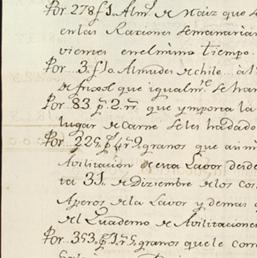 Por 278 f.s 1. Alm.s de Maiz que s
en las Raciones Semanarias
vienes en el mismo tiempo.
Por 3. f.s 10 Almudes de chile
de frisol que igualm.te se han
Por 83 p.s 2. rr.s que ymporta la
lugar de Carne se les ha dado
Por 225 p.s granos que an im
Avilitacion de esta Lavor desde
ta 31 de Diziembre de los cos
Aperos de la Lavor y demas q
el Quaderno de Avilitaciones
Por 353 p.s 1 r.s granos que le corr